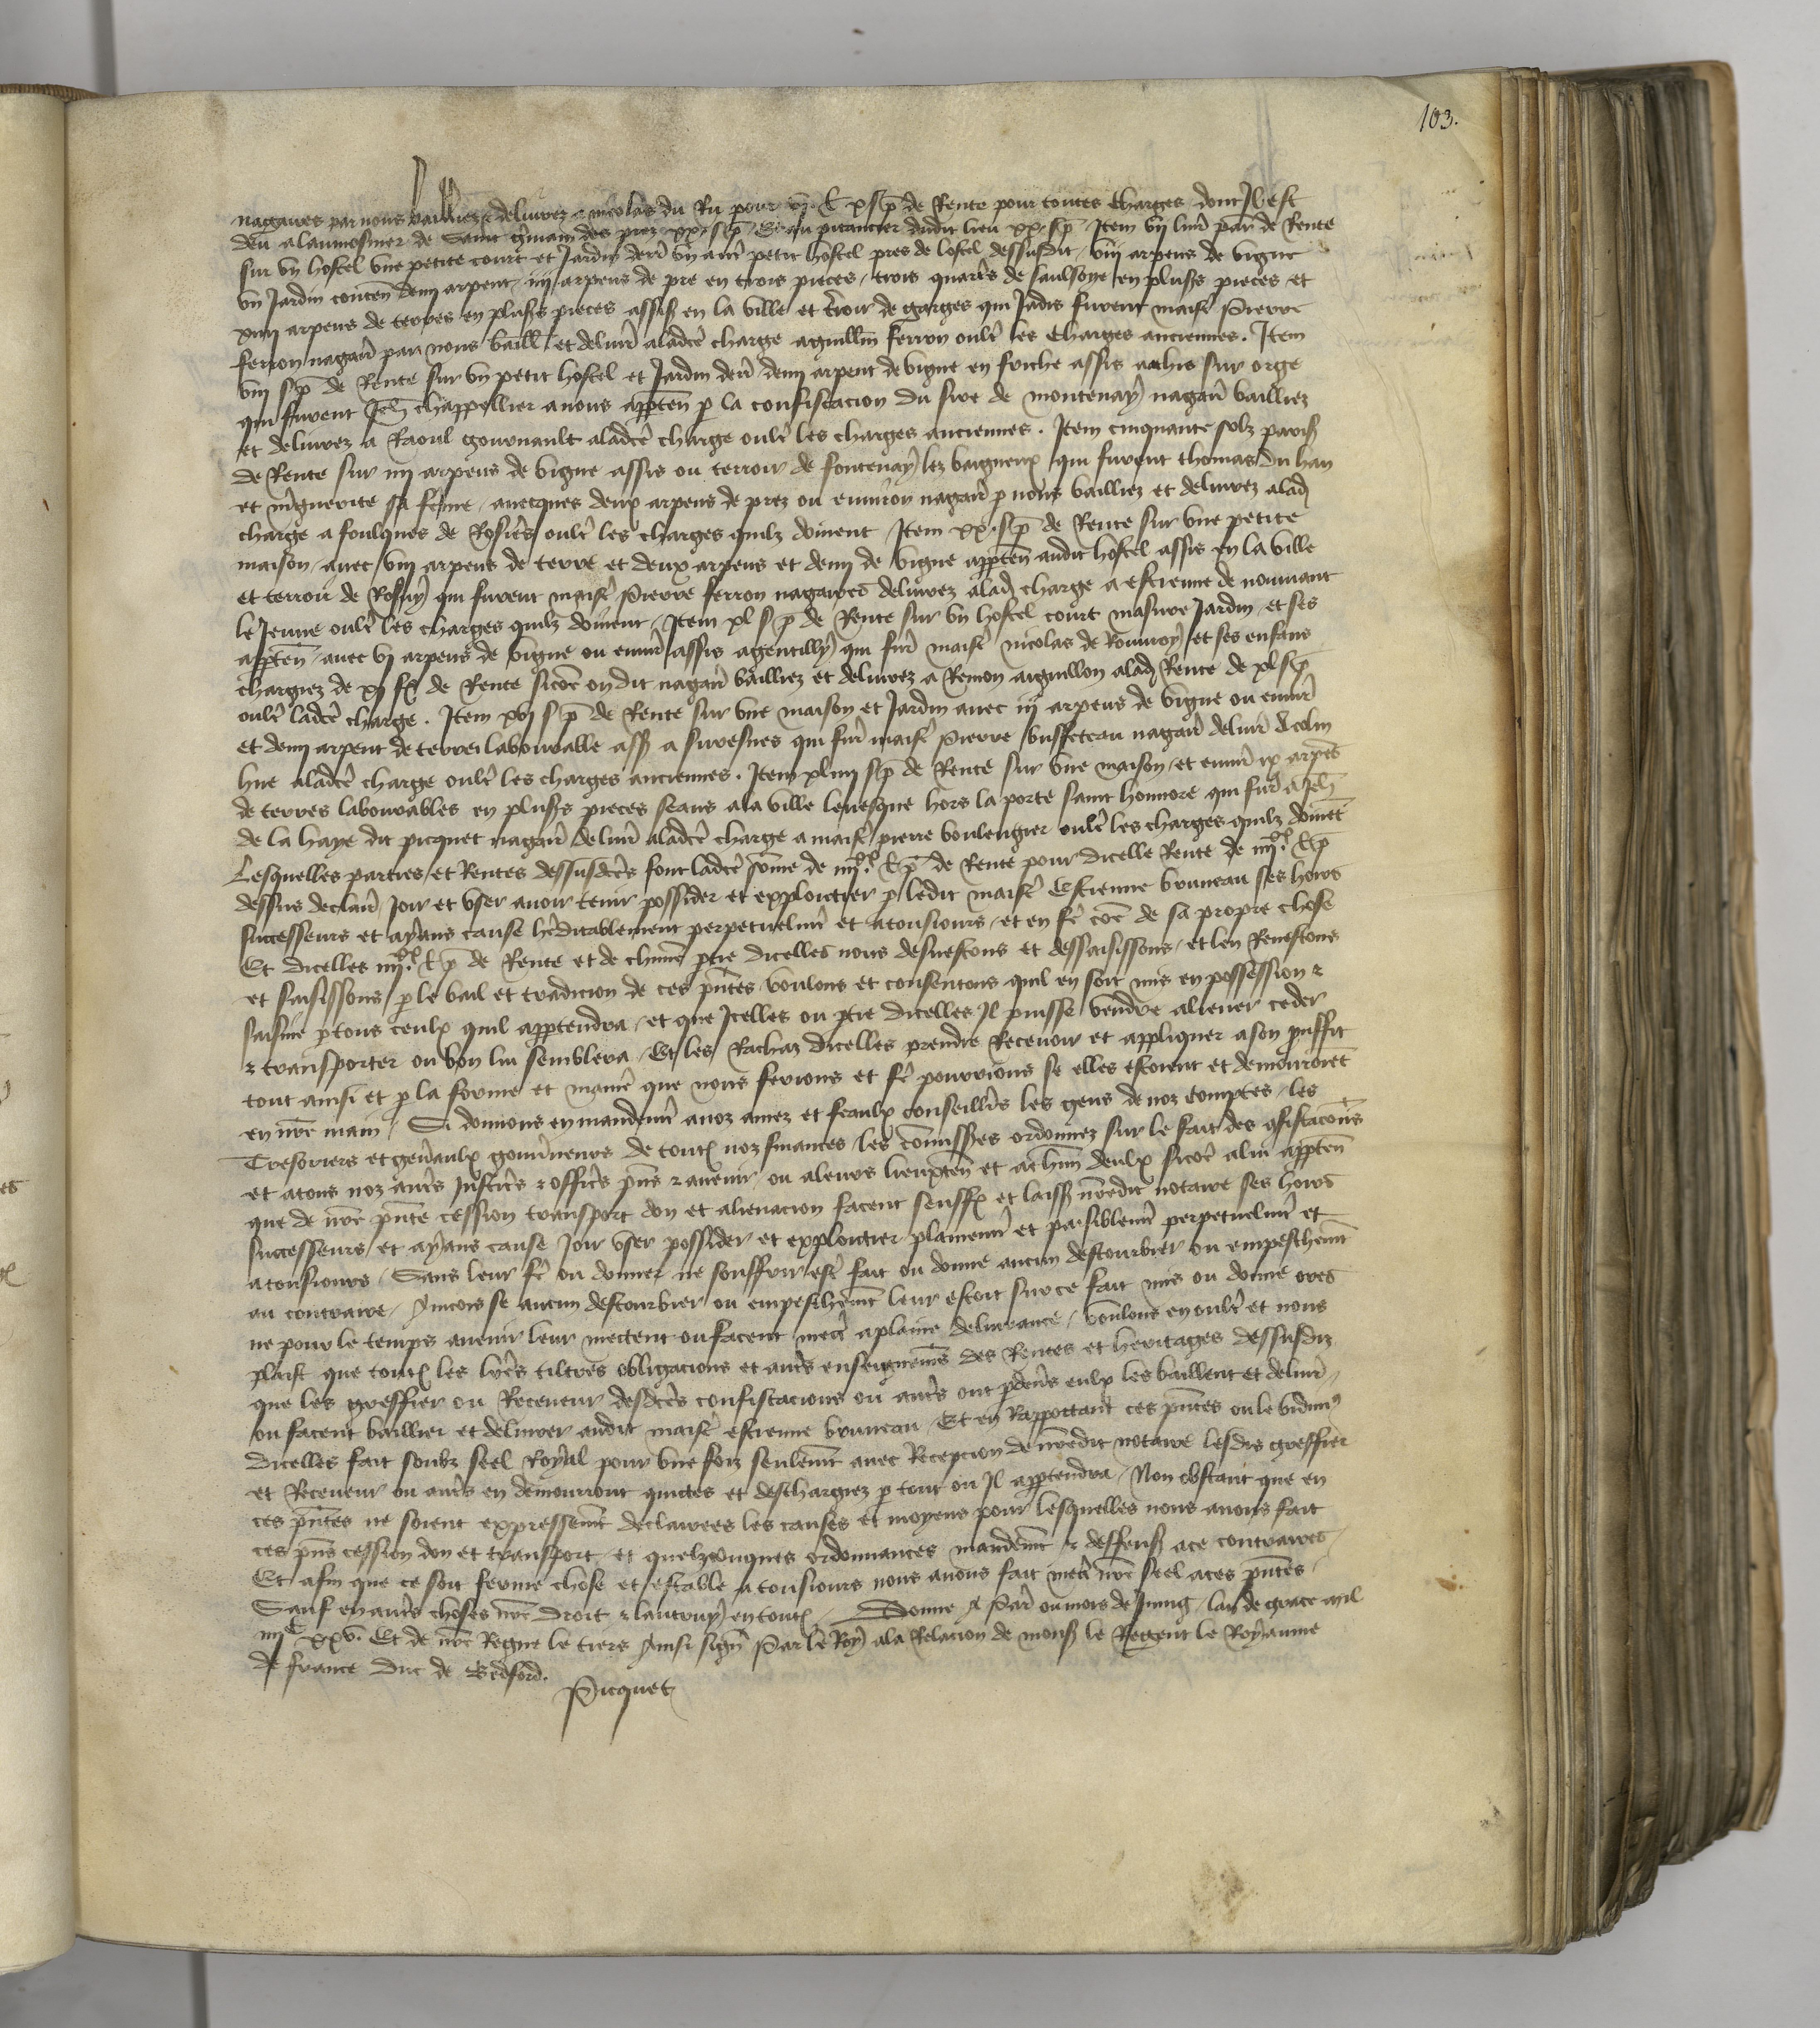 103.
nagaires par nous bailliez et delivrez a nicolas du Ru pour vj £ x s p de Rente pour toutes charges dont Il est
deu a laumosnier de saint gmain des prez xx s p Et au pitancier dudit lieu xx s p Item vij liur par de Rente
sur vn hostel vne petite court et Jardin derr vn autr petit hostel pres de lostel dessusdit viij arpens de vigne
vn Jardin conten demj arpent iiij arpens de pre en trois pieces trois quarts de saulsoye en pluss pieces et
xiiij arpens de terres en pluss pieces assis en la ville et troir de garges qui Jadis furent maist Pierre
ferron nagair par nous baill et deliur aladce charge aguillm ferron oultr les Charges anciennes. Item
viij s p de Rente sur vn petit hostel et Jardin derr demj arpent de vigne en friche assis athis sur orge
qui furent Jeh chappellier anous apparten p la confiscacion du sire de montenay nagair bailliez
et deliurez a Raoul gournault aladce charge oultr les charges anciennes. Item cinquante solz paris
de Rente sur iiij arpens de vigne assis ou terroir de fontenay lez baigneux qui furent thomas du han
et mguerite sa feme auecques deux arpens de prez ou enuiron nagair p nous bailliez et deliurez alad
charge a foulques de Rosiers oultr les charges quilz doiuent Item xx s p de Rente sur vne petite
maison auec viij arpens de terre et deux arpens et demj de vigne apparten audit hostel assis en la ville
et terroir de Rosny qui furent maist Pierre ferron nagaires deliurez alad charge a estienne de nouuiant
le Jeune oultr les charges quilz doiuent Item xl s p de Rente sur vn hostel court masure Jardin et ses
apparten auec vj arpens de vigne ou enuir assis agentilly qui fur maist nicolas de Rouuroy et ses enfans
chargiez de xj fx de Rente sicoe on dit nagair bailliez et deliurez a Remon aiguillon alad Rente de xl s p
oultr ladce charge. Item xvj s p de Rente sur vne maison et Jardin auec iij arpens de vigne ou enuir
et demj arpent de terre labourable ass a suresnes qui fur maist Pierre buffeteau nagair deliur a colin
hue aladce charge oultr les charges anciennes. Item xliiij s p de Rente sur vne maison et enuir ix arpes
de terres labourables en pluss pieces seans ala ville leuesque hors la porte saint honnore qui fur a Jeh
de la haye dit picquet nagair deliur aladce charge a maist pierre boulengier oultr les charges quilz doiuet
Lesquelles parties et Rentes dessusdces font ladce some de iiijxx £ p de Rente pour dicelle Rente de iiijxx £ p
dessus declair Joir et vser auoir tenir possider et exploictier p ledit maist Estienne bruneau ses hoirs
successeurs et ayans cause hereditablement perpetuelmt et atousiours et en fe coe de sa propre chose
Et dicelles iiijxx £ p de Rente et de chune ptie dicelles nous desuestons et dessaisissons et len Reuestons
et saisissons p le bail et tradicion de ces pntes voulons et consentons quil en soit mis en possession et
saisine p tous ceulx quil appartendra et que Icelles ou ptie dicelles Il puisse vendre aliener ceder
et transporter ou bon lui semblera Et les Rachaz dicelles prendre Receuoir et appliquer ason prouffit
tout ainsi et p la forme et manie que nous ferions et fe pourrions se elles estoient et demouroiet
en nre main Si donnons en mandemt anoz amez et feaulx conseillrs les gens de noz comptes les
Tresoriers et genaulx gouuneurs de toutes noz finances les comissres ordonnez sur le fait des confiscacions
et atous noz autrs Justicrs et officrs pns et auenir ou aleurs lieuxten et achun deulx sicoe alui apparten
que de nre pnte cession transport don et alienacion facent seuff et laiss nredit notaire ses hoirs
successeurs et ayans cause Joir vser possider et exploictier plainemt et paisiblemt perpetuelmt et
atousiours Sans leur fe ou donner ne souffrir est fait ou donne aucun destourbier ou empeschemt
au contraire Aincois se aucun destourbier ou empeschemt leur estoit sur ce fait mis ou donne ores
ne pour le temps auenir leur mectent ou facent mect aplaine deliurance voulons en oultr et nous
plaist que toutes les lres tiltres obligacions et autrs enseignemes des Rentes et heritages dessusdiz
que les greffier ou Receueur desdces confiscacions ou autrs ont pdeurs eulx les baillent et deliur
ou facent baillier et deliurer audit maist estienne bruneau Et en Rapportant ces pntes ou le vidimus
dicelles fait soubz seel Royal pour vne foiz seulemt auec Recepcion de nredit notaire lesdis greffier
et Receueur ou autrs en demourront quictes et deschargiez p tout ou Il appartendra Non obstant que en
ces pntes ne soient expressemt declairees les causes et moyens pour lesquelles nous auons fait
ces pns cession don et transport et quelzconques ordonnances mandemt et deffens ace contraires
Et afin que ce soit ferme chose et estable atousiours nous auons fait mect nre seel aces pntes
Sauf en autrs choses nre droit et lautruy en toutes Donne A Par ou mois de Juing lan de grace mil
iiijc xxv. Et de nre Regne le tiers Ainsi sign Par le Roy ala Relacion de mons le Regent le Royaume
de france duc de Bedford.
Picquet